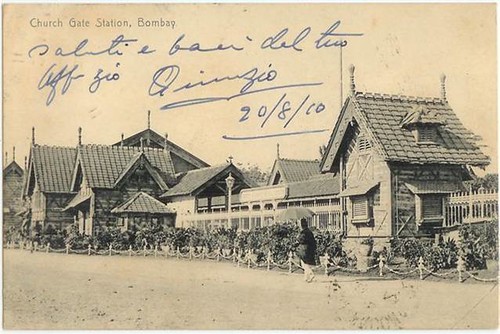 Church Gate Station, Bombay.
saluti e baci del tuo
Aff-zio
20/8/10